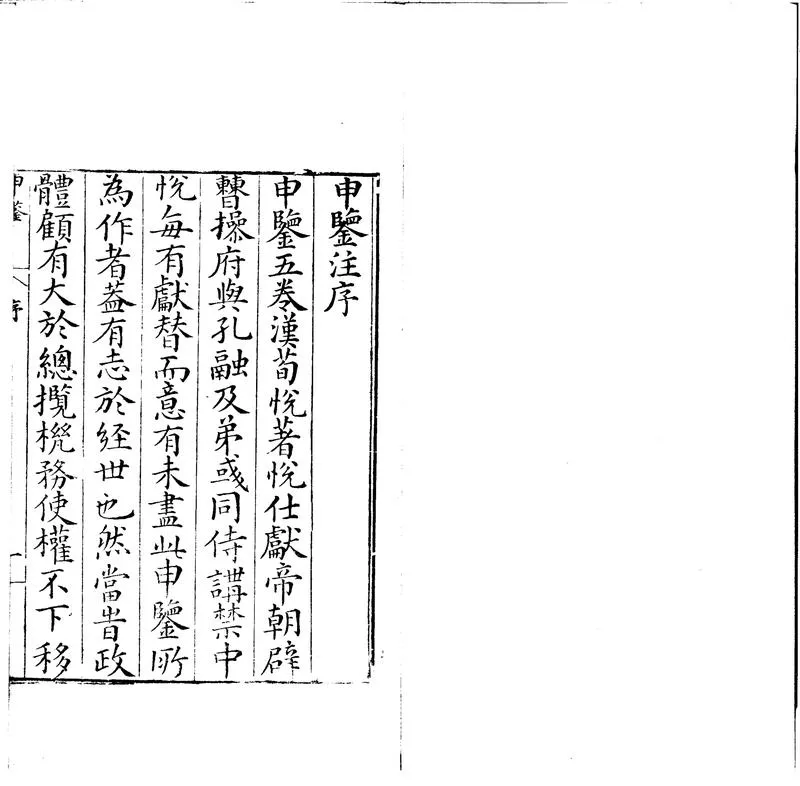 申鑒注序
申鑒五卷漢荀悅著悅仕獻帝朝辟
曹操府與孔融及弟彧同侍講禁中
悅每有獻替而意有未盡此申鑒所
為作者蓋有志於經世也然當旹政
體顧有大於總攬機務使權不下移
申鑒 序 一